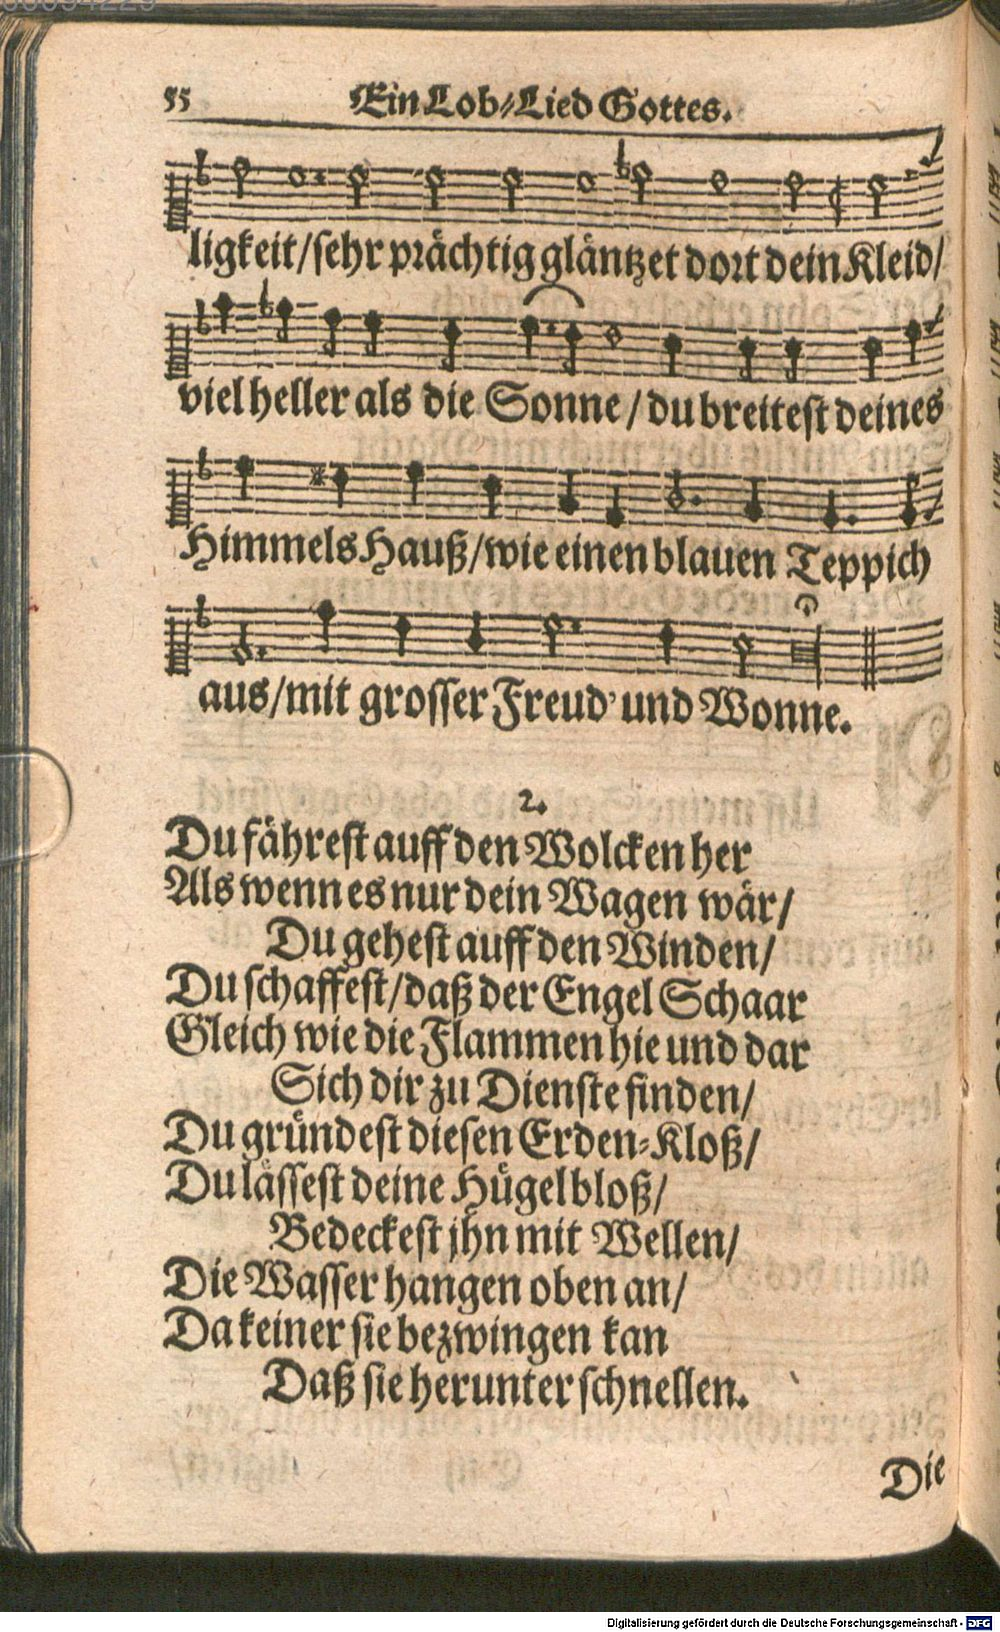 55 Ein Lob⸗Lied Gottes.
ligkeit/ſehr prächtig gläntzet dort dein Kleid/
viel heller als die Sonne/du breiteſt deines
Himmels Hauß/wie einen blauen Teppich
aus/mit groſſer Freud' und Wonne.
2.
Du fähreſt auff den Wolcken her
Als wenn es nur dein Wagen wär/
Du geheſt auff den Winden/
Du ſchaffeſt/daß der Engel Schaar
Gleich wie die Flammen hie und dar
Sich dir zu Dienſte finden/
Du gründeſt dieſen Erden⸗Kloß/
Du läſſeſt deine Hügel bloß/
Bedeckeſt jhn mit Wellen/
Die Waſſer hangen oben an/
Da keiner ſie bezwingen kan
Daß ſie herunter ſchnellen.
Die
Digitalisierung gefördert durch die Deutsche Forschungsgemeinschaft - DFG